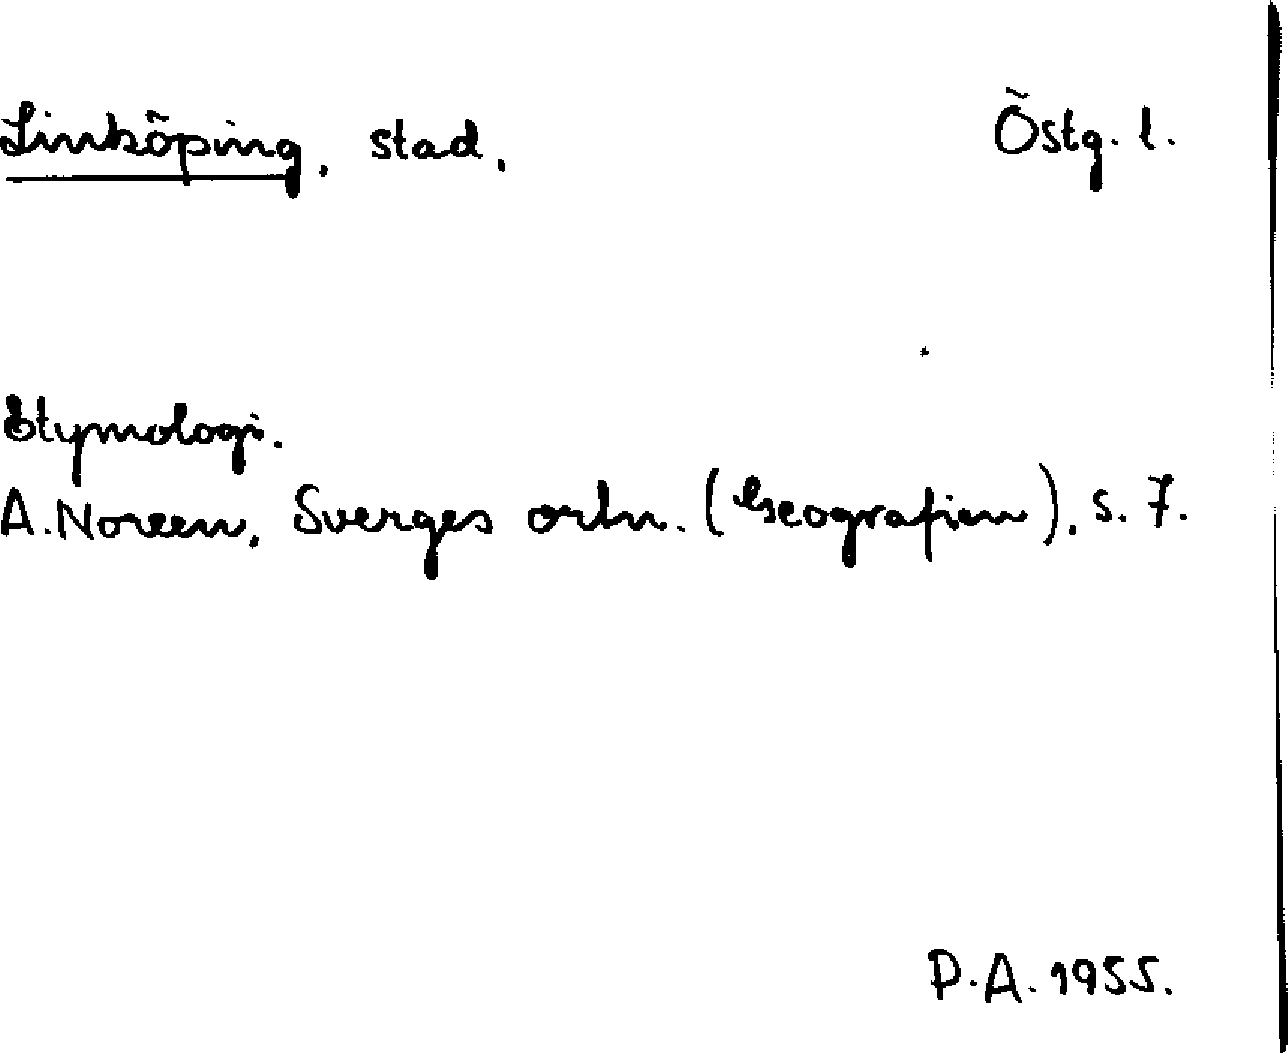 Linköping, stad, Östg. l.
Etymologi.
A. Noreen, Sverges ortn. (Geografien), s. 7.
P.A. 1955.